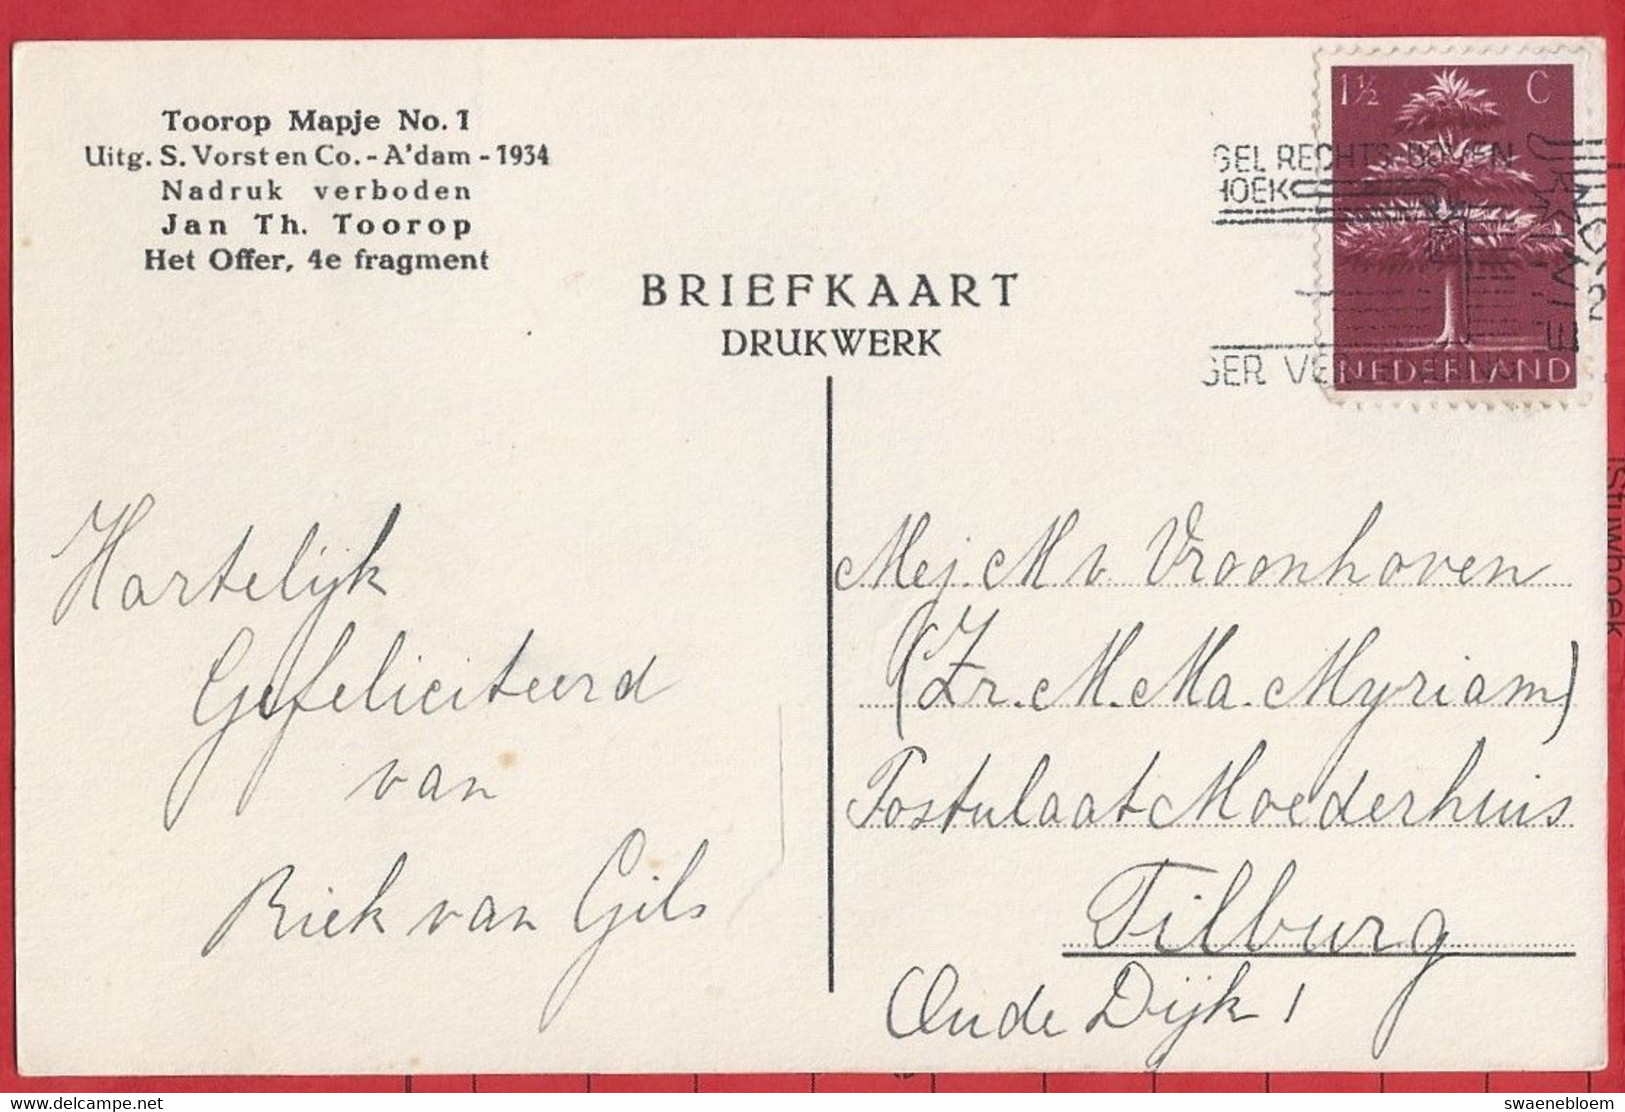 Toorop Mapje No. 1
Uitg. S. Vorst en Co. - A'dam - 1934
Nadruk verboden
Jan Th. Toorop
Het Offer, 4e fragment
BRIEFKAART
DRUKWERK
1½ C
GEL RECHTS BOVEN
HOEK
GER VE
NEDERLAND
Hartelijk
Gefeliciteerd
van
Riek van Gils
Mej. M v. Vroonhoven
(Zr. M. Ma. Myriam)
Postulaat Moederhuis
Tilburg
Oude Dijk 1
Stuwhoek
delcampe.net
swaenebloem